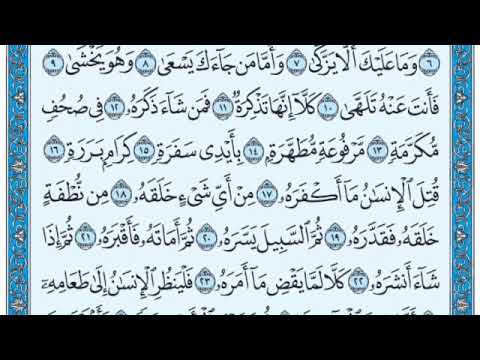 ٦ وَمَا عَلَيْكَ أَلَّا يَزَّكَّىٰ ٧ وَأَمَّا مَن جَآءَكَ يَسْعَىٰ ٨ وَهُوَ يَخْشَىٰ ٩
فَأَنتَ عَنْهُ تَلَهَّىٰ ١٠ كَلَّآ إِنَّهَا تَذْكِرَةٌ ١١ فَمَن شَآءَ ذَكَرَهُۥ ١٢ فِى صُحُفٍ
مُّكَرَّمَةٍ ١٣ مَّرْفُوعَةٍ مُّطَهَّرَةٍۭ ١٤ بِأَيْدِى سَفَرَةٍ ١٥ كِرَامٍۭ بَرَرَةٍ ١٦
قُتِلَ ٱلْإِنسَٰنُ مَآ أَكْفَرَهُۥ ١٧ مِنْ أَىِّ شَىْءٍ خَلَقَهُۥ ١٨ مِن نُّطْفَةٍ
خَلَقَهُۥ فَقَدَّرَهُۥ ١٩ ثُمَّ ٱلسَّبِيلَ يَسَّرَهُۥ ٢٠ ثُمَّ أَمَاتَهُۥ فَأَقْبَرَهُۥ ٢١ ثُمَّ إِذَا
شَآءَ أَنشَرَهُۥ ٢٢ كَلَّا لَمَّا يَقْضِ مَآ أَمَرَهُۥ ٢٣ فَلْيَنظُرِ ٱلْإِنسَٰنُ إِلَىٰ طَعَامِهِۦٓ